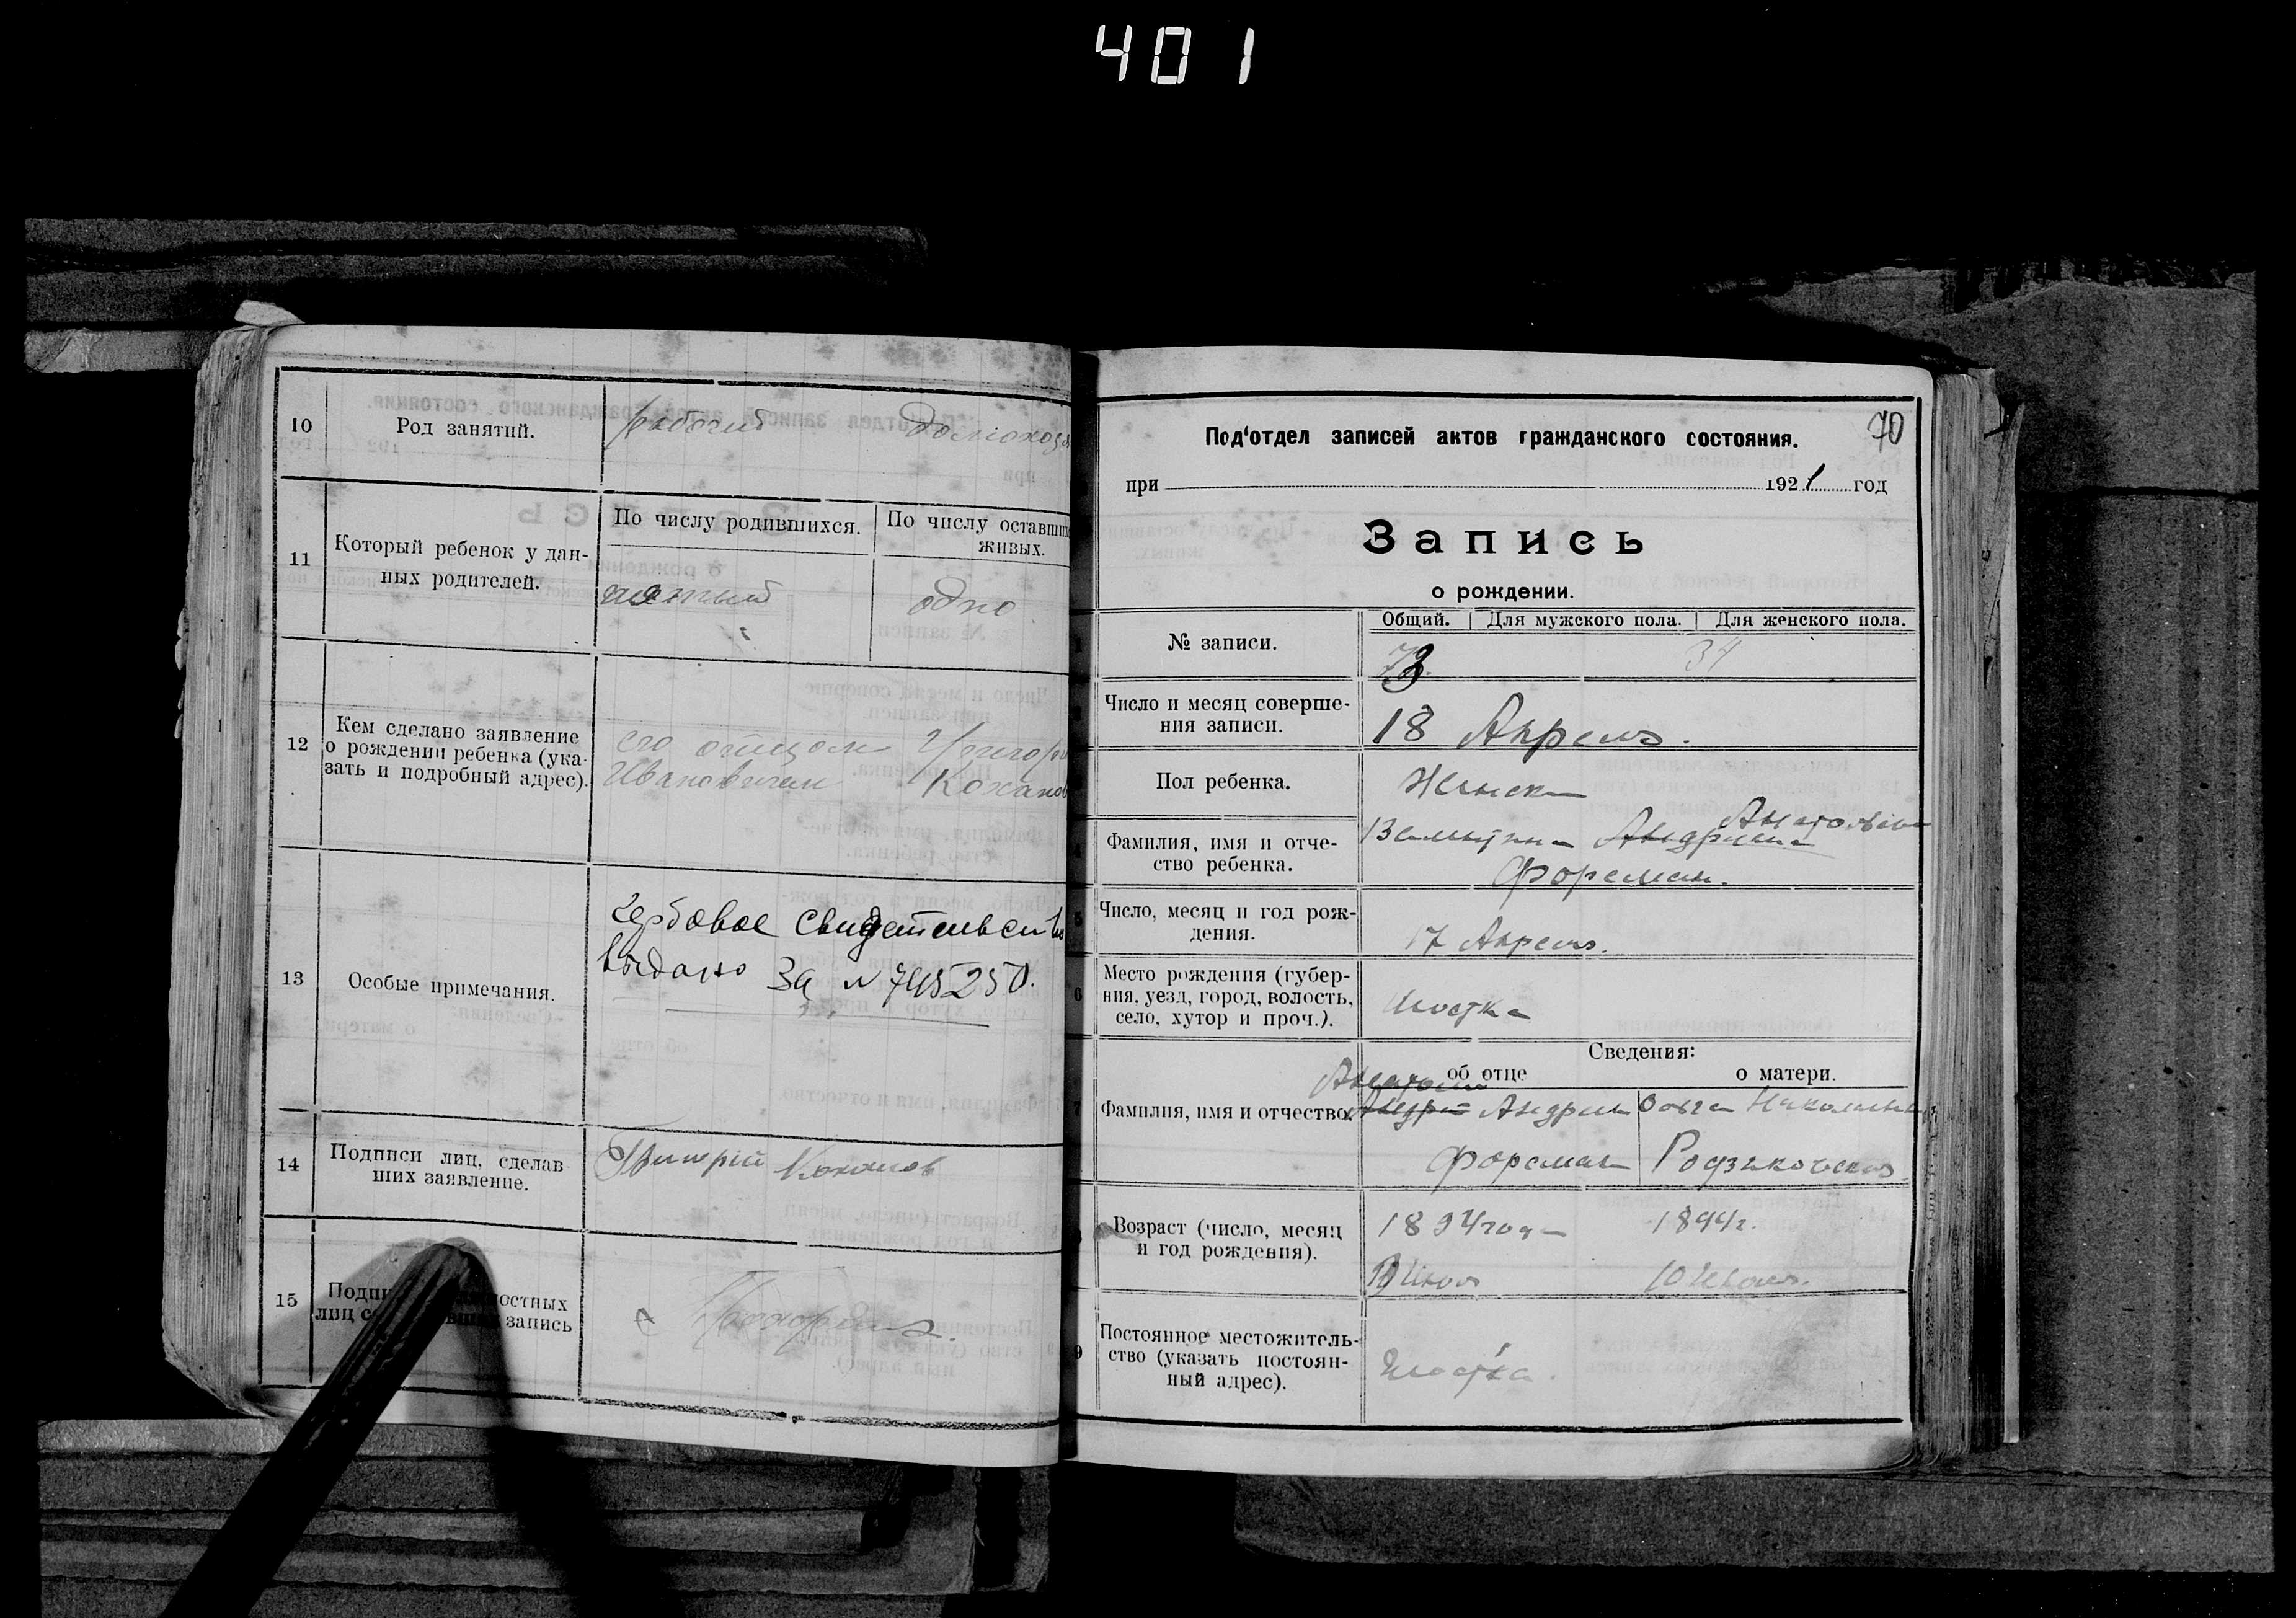 401
10
Род занятий.
рабочий
домохоз
11
Который ребенок у дан-
ных родителей.
По числу родившихся.
По числу оставших
живых.
пятый
одно
12
Кем сделано заявление
о рождении ребенка (ука-
зать и подробный адрес).
его отцом Григори
Ивановичем Кохано
13
Особые примечания.
Гербовое свидетельство
выдано за №
14
Подписи лиц, сделав
ших заявление.
Коханов
15
Подпи остных
лиц со запись
70
Под'отдел записей актов гражданского состояния.
при 1921 год
Запись
о рождении.
№ записи.
Общий. Для мужского пола. Для женского пола.
73. 34
Число и месяц соверше-
ния записи.
18 Апреля.
Пол ребенка.
Женск
Фамилия, имя и отче-
ство ребенка.
Анатольев
Форсман.
Число, месяц и год рож-
дения.
17 Апреля.
Место рождения (губер-
ния, уезд, город, волость,
село, хутор и проч.).
Шостка
Сведения:
об отце
о матери.
Фамилия, имя и отчество.
Ольга Николаевн
Форсман
Возраст (число, месяц
и год рождения).
1894 года
1894г.
10
Постоянное местожитель-
ство (указать постоян-
ный адрес).
9
Шостка.